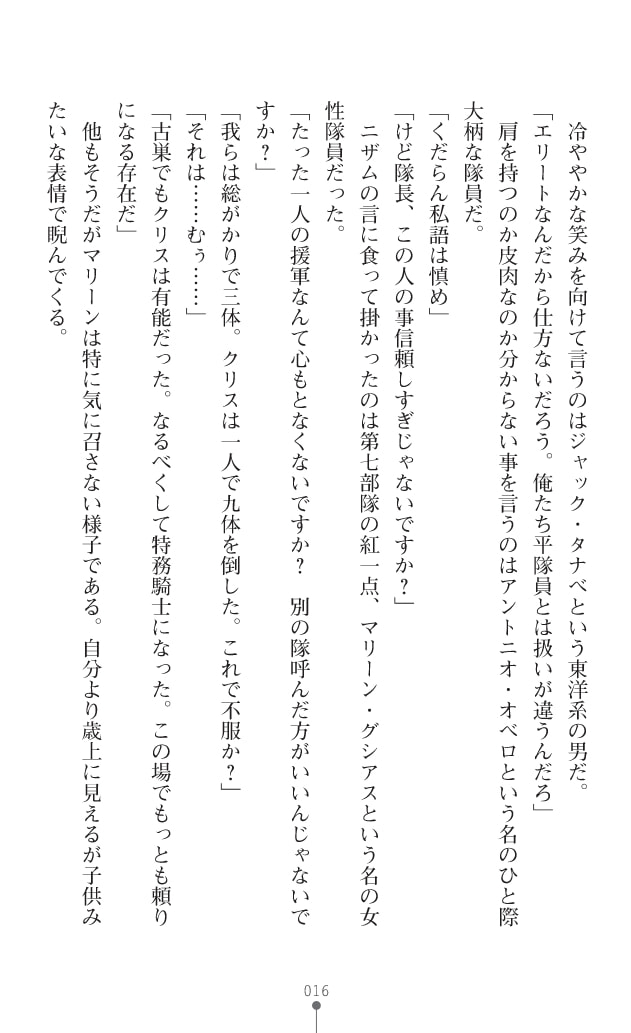 冷ややかな笑みを向けて言うのはジャック・タナベという東洋系の男だ。
「エリートなんだから仕方ないだろう。俺たち平隊員とは扱いが違うんだろ」
肩を持つのか皮肉なのか分からない事を言うのはアントニオ・オベロという名のひと際
大柄な隊員だ。
「くだらん私語は慎め」
「けど隊長、この人の事信頼しすぎじゃないですか？」
ニザムの言に食って掛かったのは第七部隊の紅一点、マリーン・グシアスという名の女
性隊員だった。
「たった一人の援軍なんて心もとなくないですか？　別の隊呼んだ方がいいんじゃないで
すか？」
「我らは総がかりで三体。クリスは一人で九体を倒した。これで不服か？」
「それは……むぅ……」
「古巣でもクリスは有能だった。なるべくして特務騎士になった。この場でもっとも頼り
になる存在だ」
他もそうだがマリーンは特に気に召さない様子である。自分より歳上に見えるが子供み
たいな表情で睨んでくる。
016